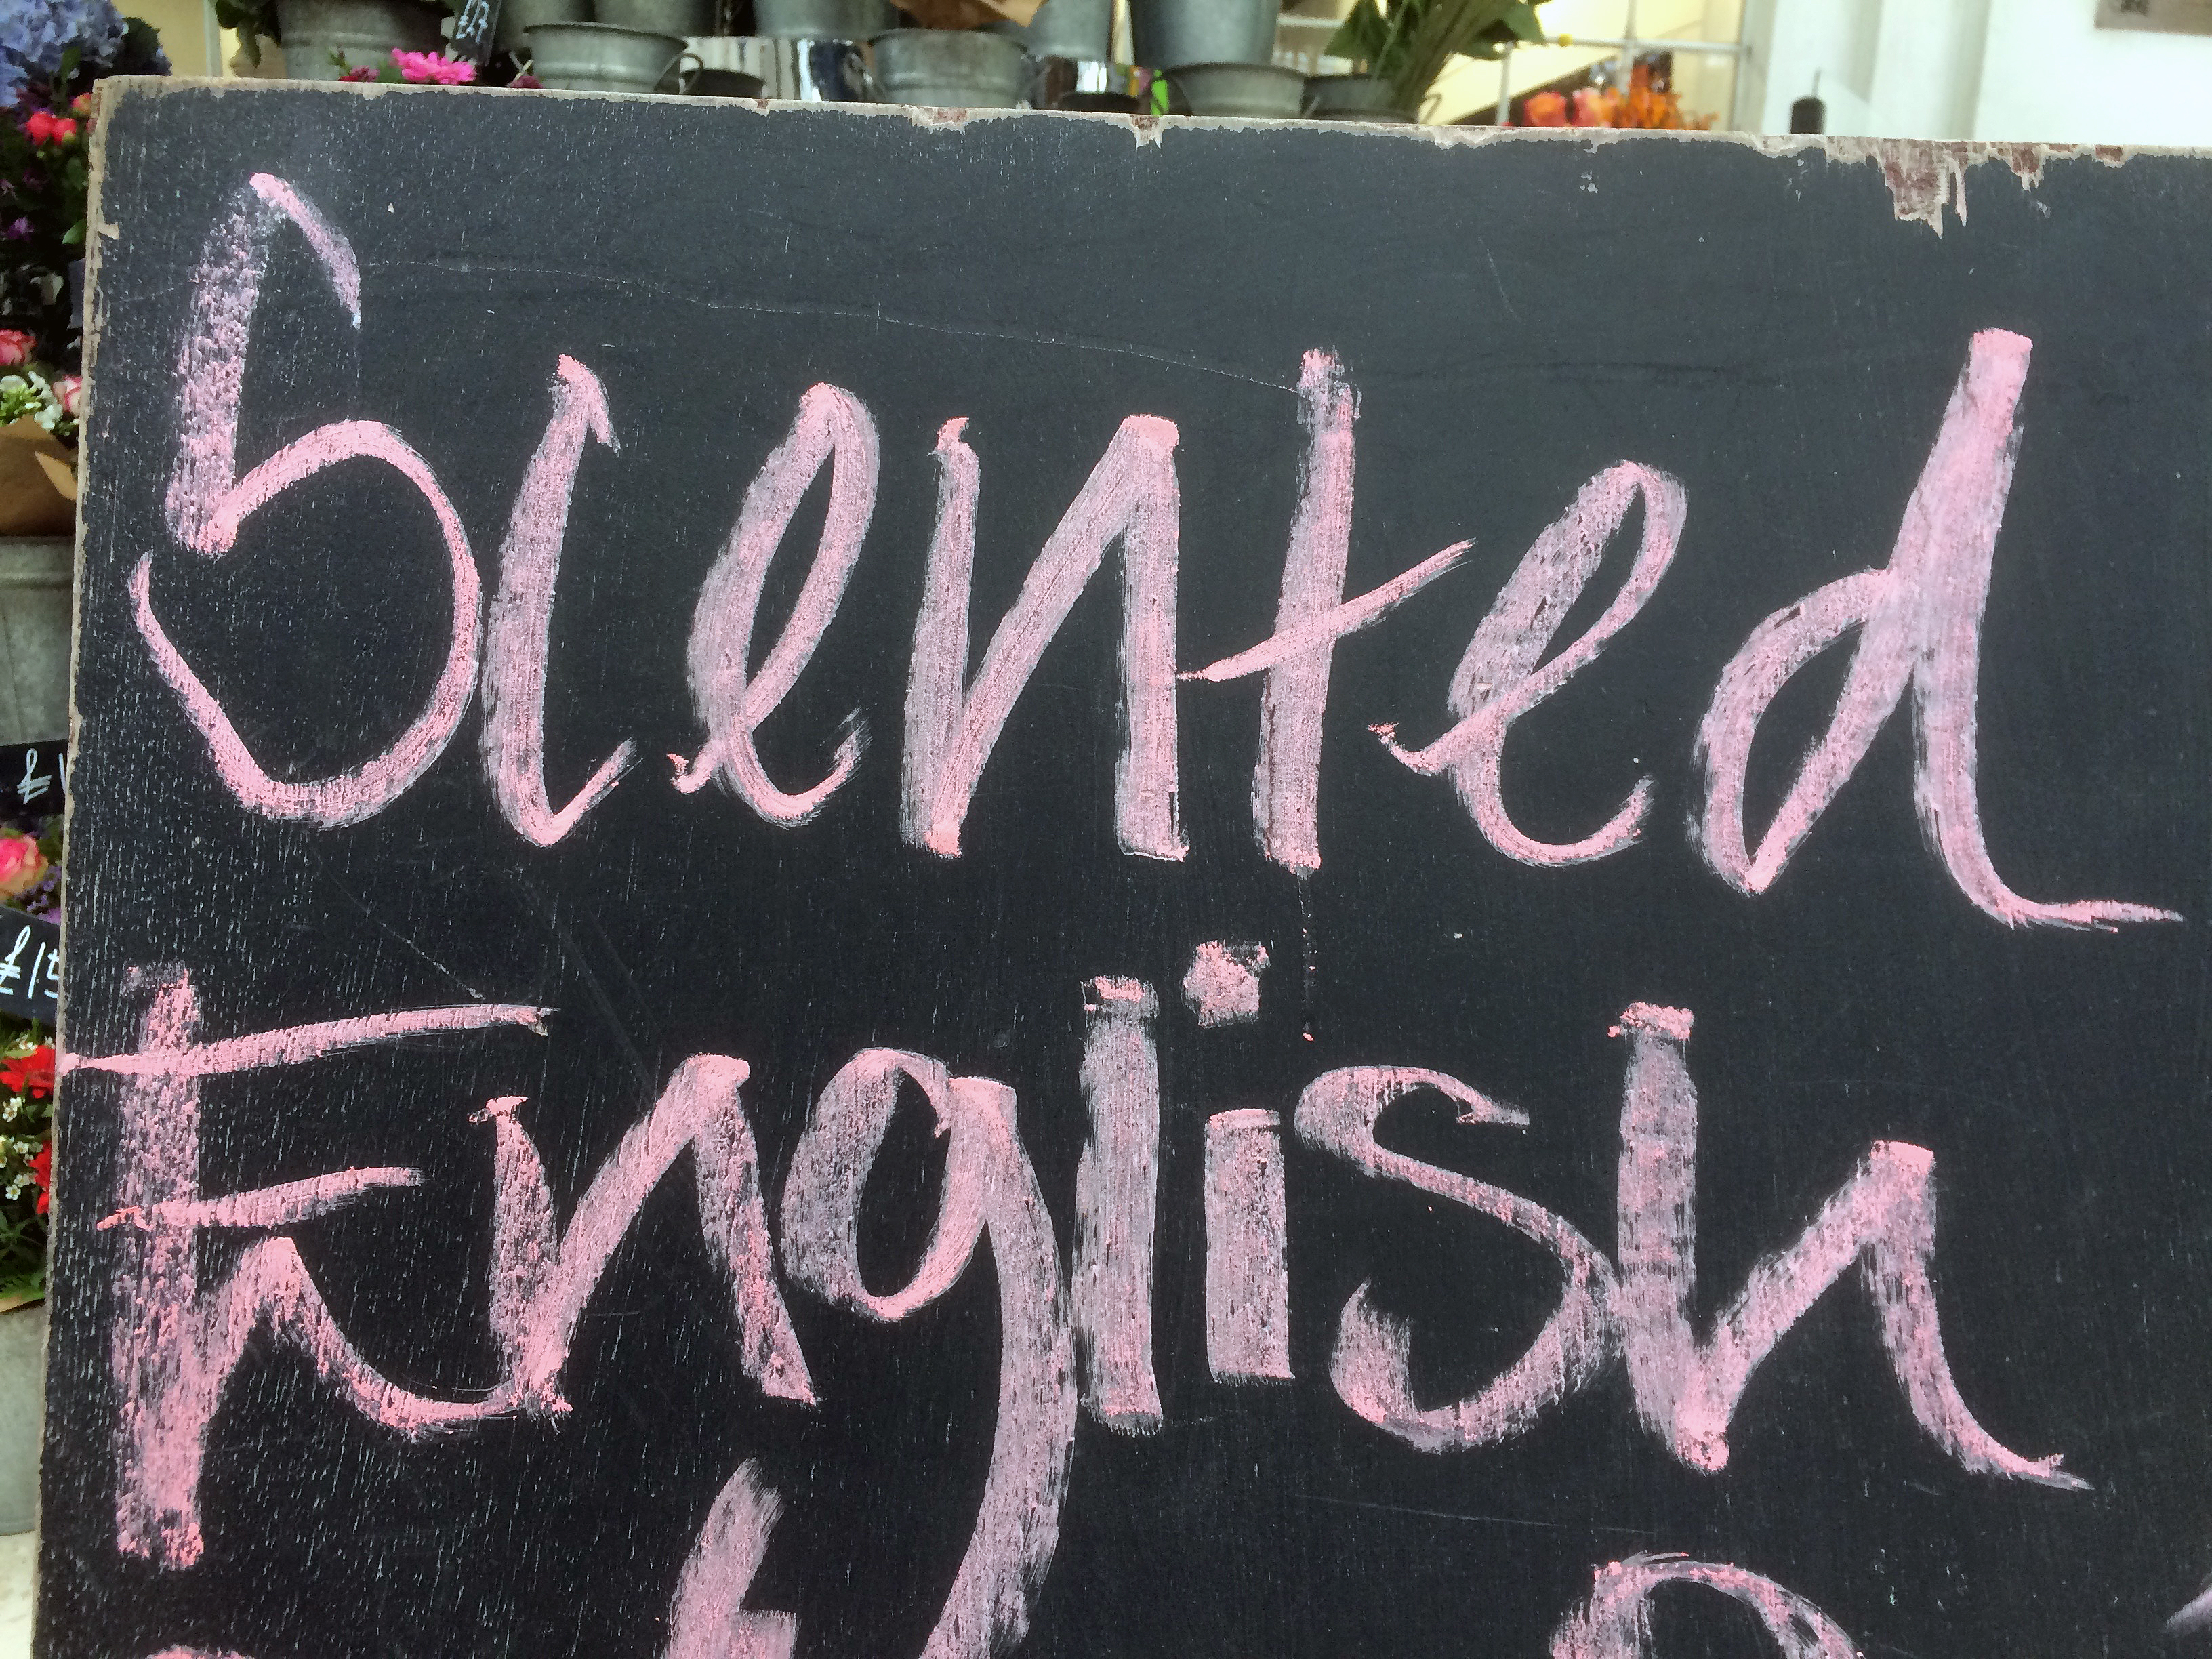 £17
Scented
English
£15